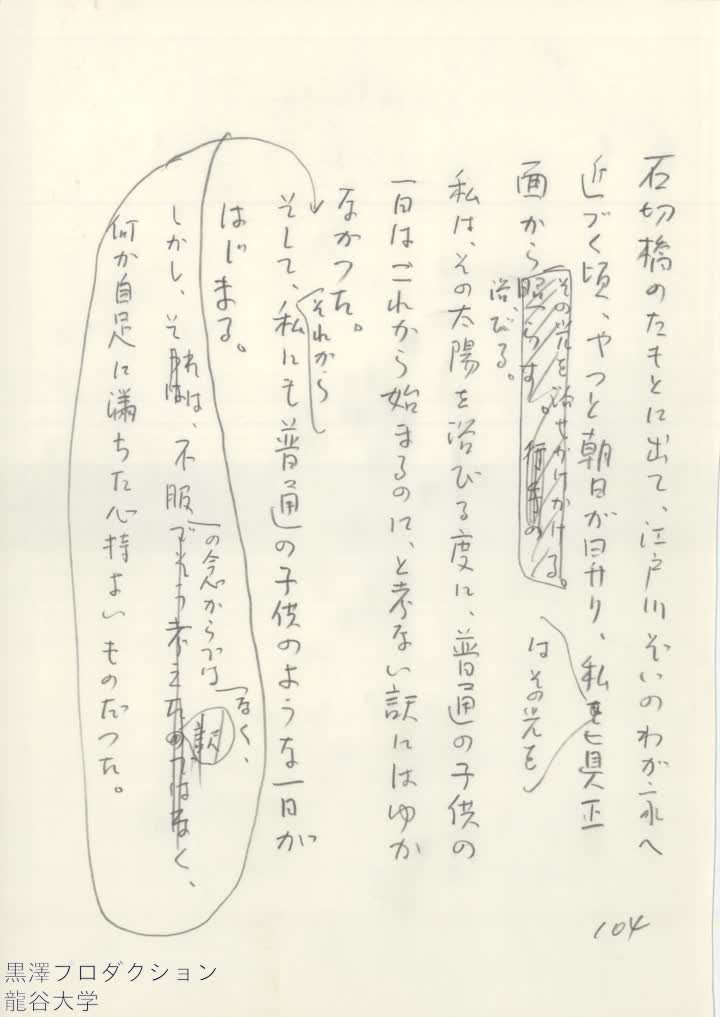 石切橋のたもとに出て、江戸川ぞいのわが家へ
近づく頃、やつと朝日が昇り、私を真正
はその光を
面から照らす。行手の
その光を浴せかけかける。
浴びる。
私は、その太陽を浴びる度に、普通の子供の
一日はこれから始まるのに、と考ない訳にはゆか
なかつた。
それから
そして、私にも普通の子供のような一日が
はじまる。
しかし、それは、不服でそう考えたのではなく、
の念からではなく、
訳
何か自足に満ちた心持よいものだつた。
104
黒澤プロダクション
龍谷大学